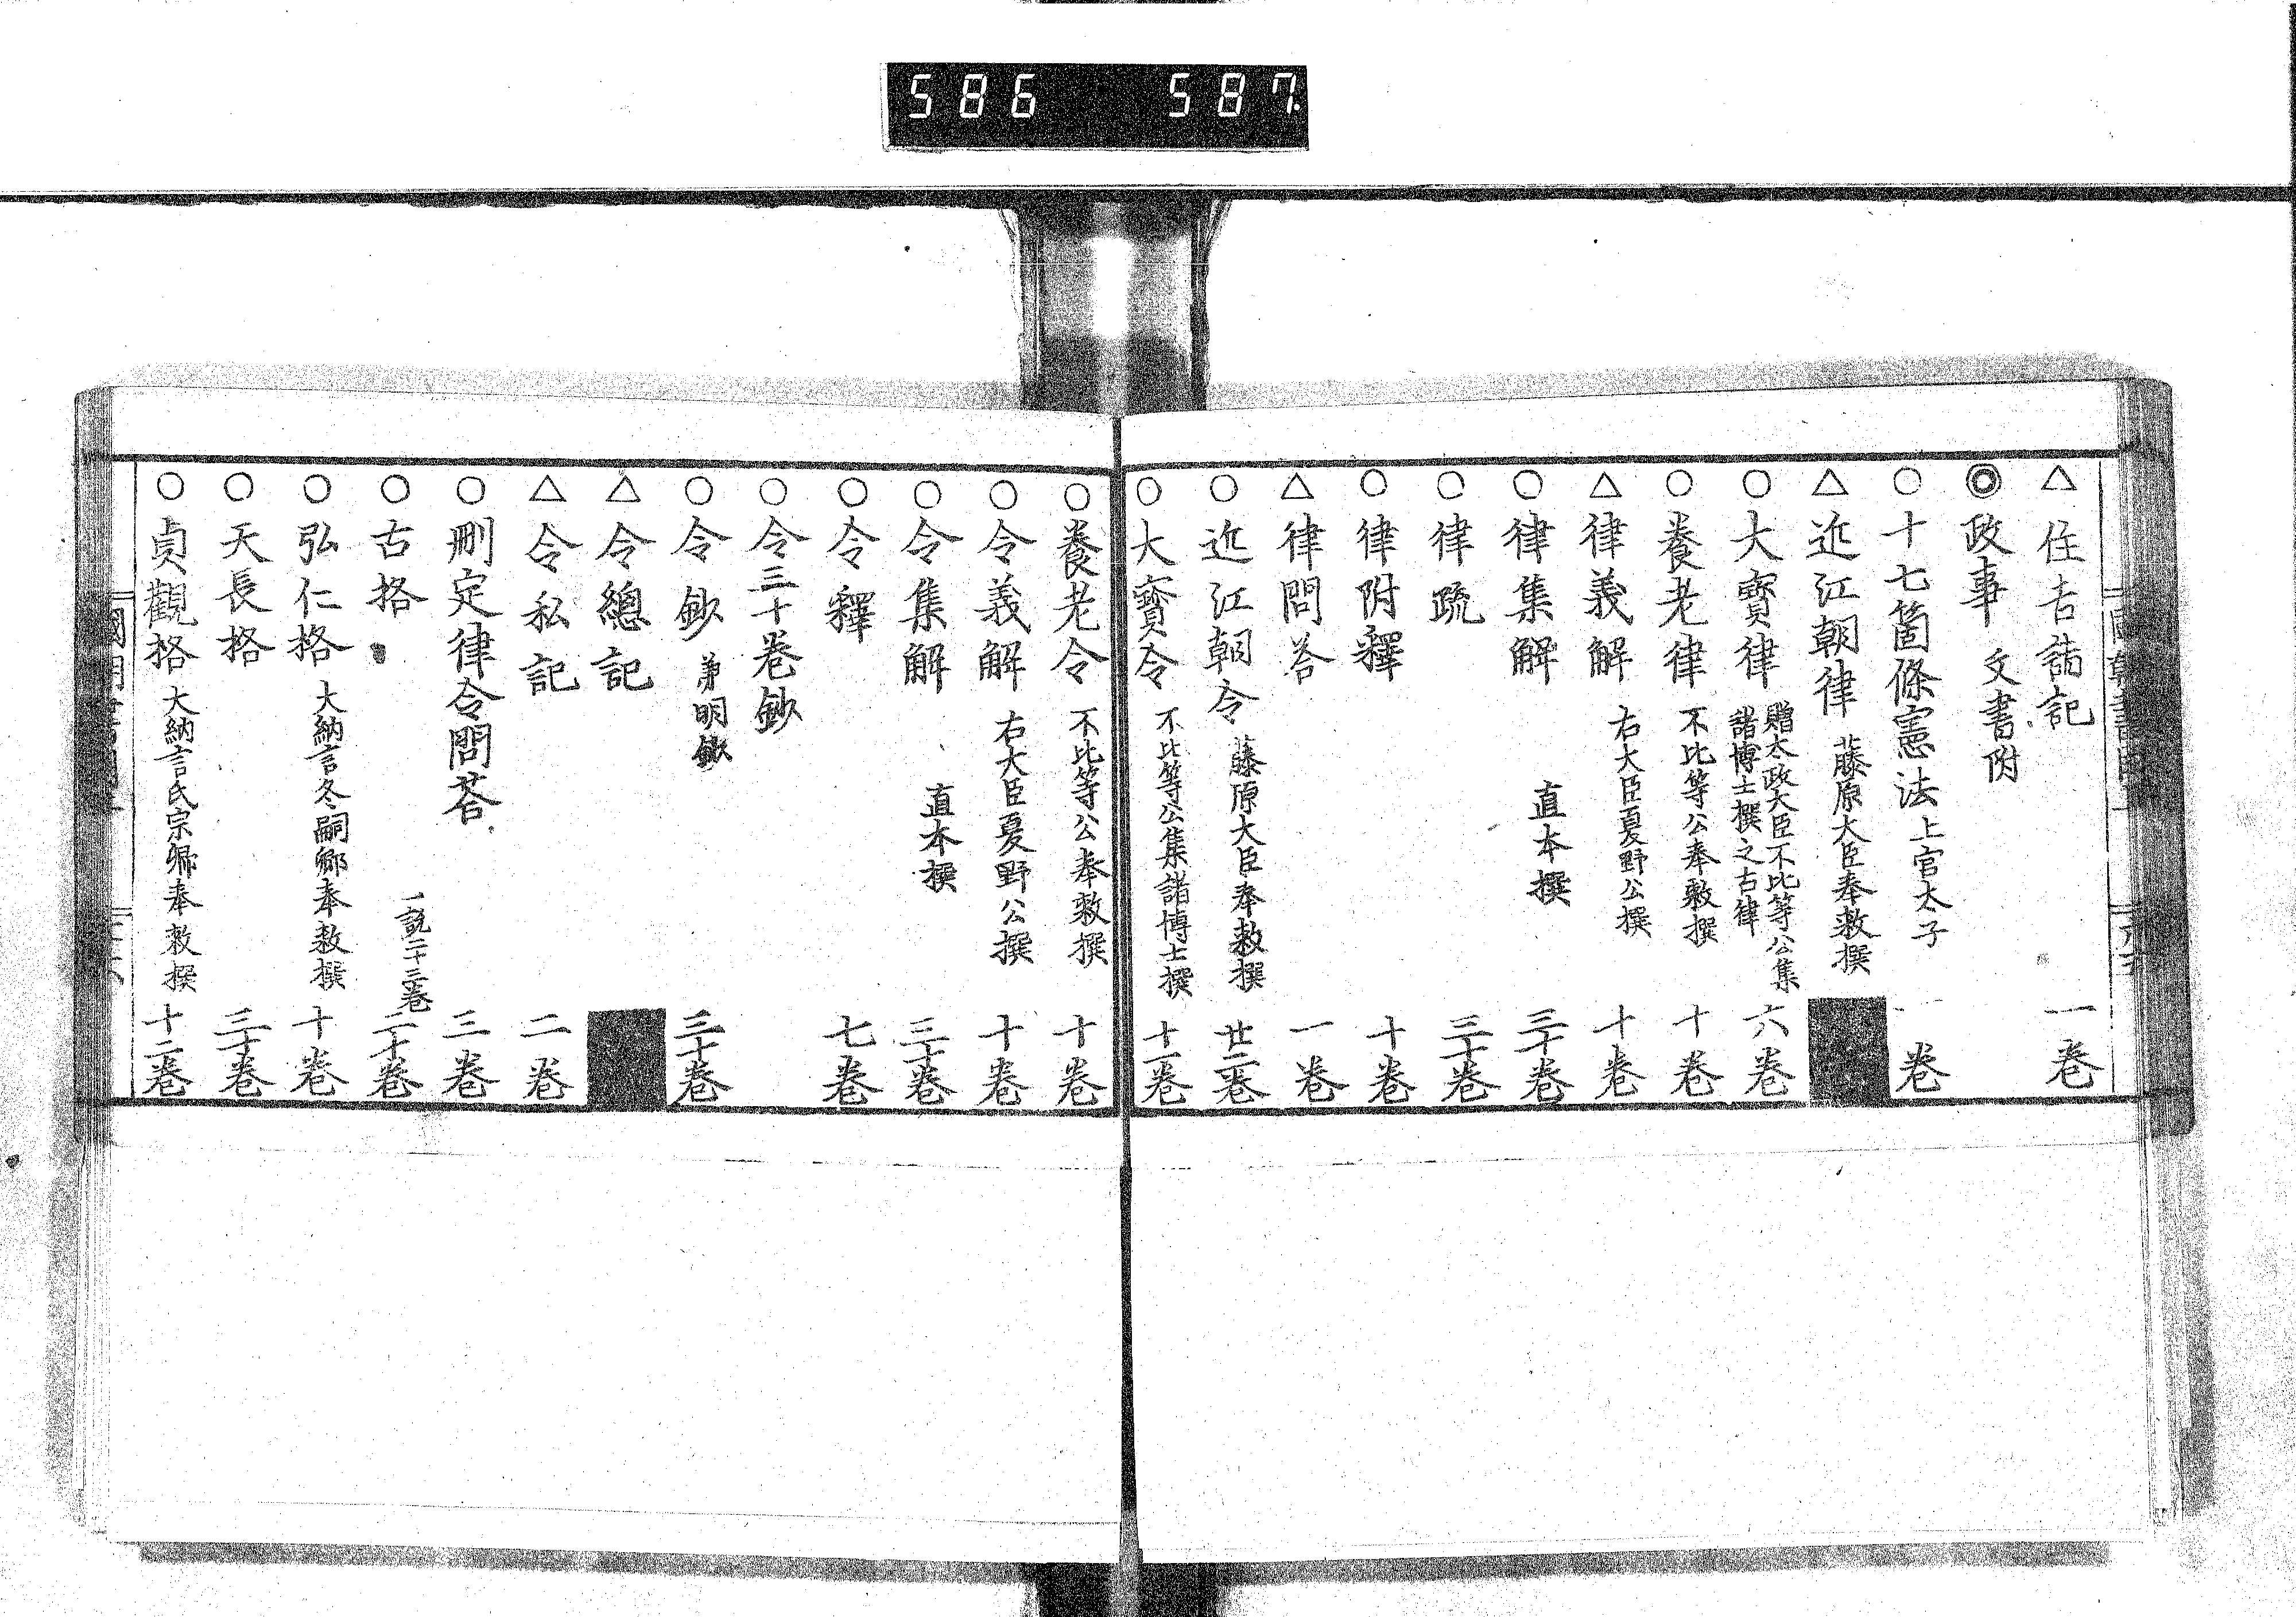 586 587
△住吉詣記 一巻
◎政事 文書附
○十七箇條憲法 上官太子 一巻
△近江朝律 藤原大臣奉敕撰
○大寶律 贈太政大臣不比等公集諸博士撰之古律 六巻
○養老律 不比等公奉敕撰 十巻
△律義解 右大臣夏野公撰 十巻
○律集解 直本撰 三十巻
○律疏 三十巻
○律附釋 十巻
△律問答 一巻
○近江朝令 藤原大臣奉敕撰 廿二巻
○大寶令 不比等公集諸博士撰 十一巻
○養老令 不比等公奉敕撰 十巻
○令義解 右大臣夏野公撰 十巻
○令集解 直本撰 三十巻
○令釋 七巻
○令三十巻鈔
○令鈔 弟明鈔 三十巻
△令總記
△令私記 二巻
○刪定律令問荅 三巻
○古格 一説二十三巻 二十巻
○弘仁格 大納言冬嗣卿奉敕撰 十巻
○天長格 三十巻
○貞觀格 大納言氏宗卿奉敕撰 十二巻